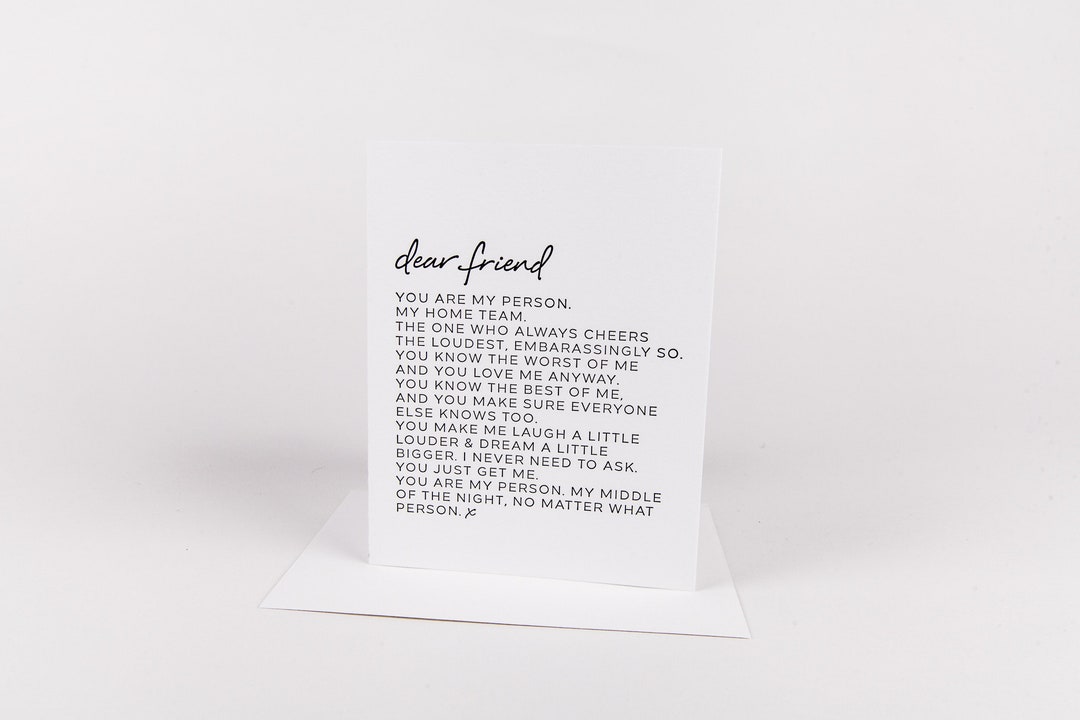 dear friend
YOU ARE MY PERSON.
MY HOME TEAM.
THE ONE WHO ALWAYS CHEERS
THE LOUDEST, EMBARASSINGLY SO.
YOU KNOW THE WORST OF ME
AND YOU LOVE ME ANYWAY.
YOU KNOW THE BEST OF ME,
AND YOU MAKE SURE EVERYONE
ELSE KNOWS TOO.
YOU MAKE ME LAUGH A LITTLE
LOUDER & DREAM A LITTLE
BIGGER. I NEVER NEED TO ASK.
YOU JUST GET ME.
YOU ARE MY PERSON. MY MIDDLE
OF THE NIGHT, NO MATTER WHAT
PERSON. x